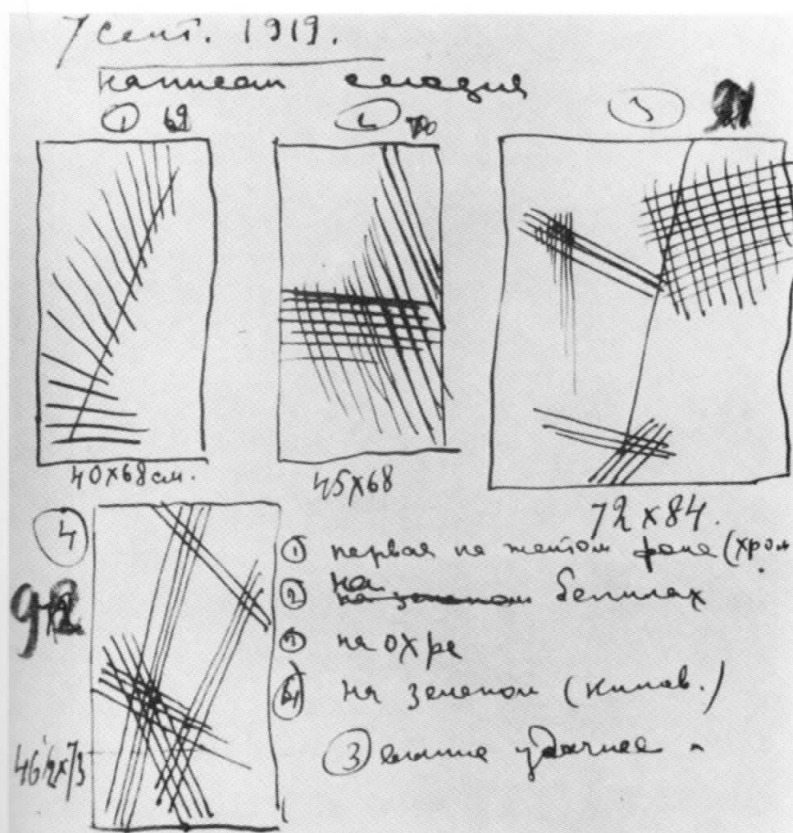 7 сент. 1919.
написал сегодня
① 69 ② 70 ③ 91
40X68 см. 45X68
72 X 84.
④ 92
46 1/2 X 73
① первая на желтом фоне (хром
② на на зеленом белилах
③ на охре
④ на зеленом (кинов.)
③ удачнее